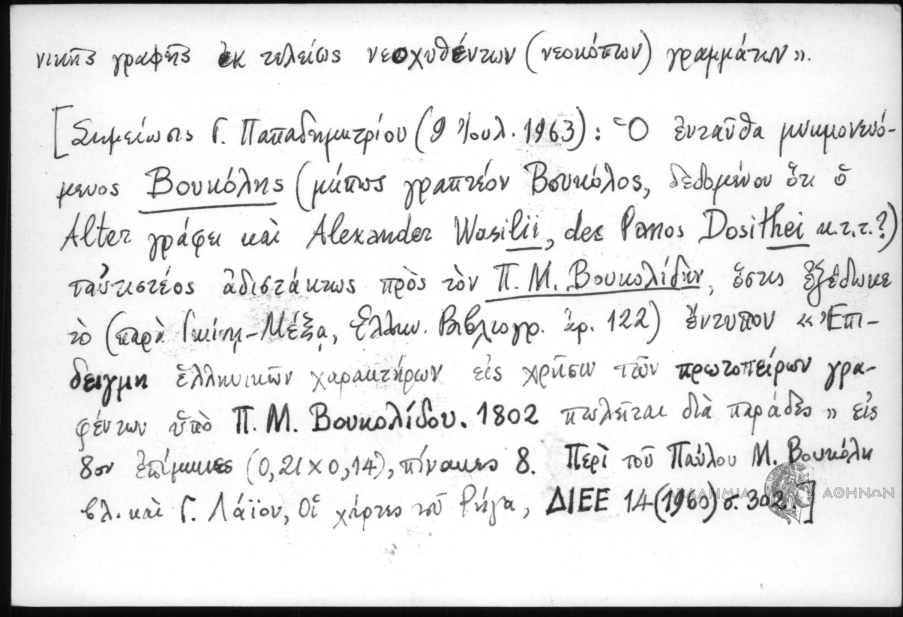 νικῆς γραφῆς ἐκ τελείως νεοχυθέντων (νεοκόπων) γραμμάτων».
[Σημείωσις Γ. Παπαδημητρίου (9 Ἰουλ. 1963): Ὁ ἐνταῦθα μνημονευό-
μενος Βουκόλης (μήπως γραπτέον Βουκόλος, δεδομένου ὅτι ὁ
Alter γράφει καὶ Alexander Wasilii, des Panos Dosithei κ.τ.τ.?)
ταὐτιστέος ἀδιστάκτως πρὸς τὸν Π. Μ. Βουκολίδην, ὅστις ἐξέδωκε
τὸ (παρὰ Γκίνη-Μέξᾳ, Ἑλλην. Βιβλιογρ. ἀρ. 122) ἔντυπον «Ἐπί-
δειγμη ἑλληνικῶν χαρακτήρων εἰς χρῆσιν τῶν πρωτοπείρων γρα-
φέντων ὑπὸ Π. Μ. Βουκολίδου. 1802 πωλεῖται διὰ παράδες» εἰς
8ον ἐπίμηκες (0,21 x 0,14), πίνακες 8. Περὶ τοῦ Παύλου Μ. Βουκόλη
βλ. καὶ Γ. Λάϊου, Οἱ χάρτες τοῦ Ρήγα, ΔΙΕΕ 14 (1960) σ. 302.]
ΑΚΑΔΗΜΙΑ ΑΘΗΝΩΝ